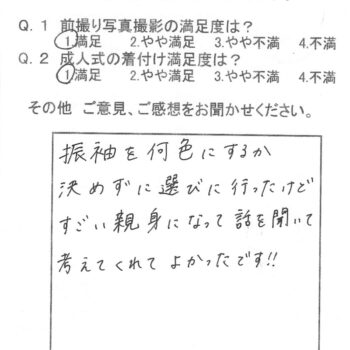 Q.1 前撮り写真撮影の満足度は？
1.満足 2.やや満足 3.やや不満 4.不満
Q.2 成人式の着付け満足度は？
1.満足 2.やや満足 3.やや不満 4.不満
その他 ご意見、ご感想をお聞かせください。
振袖を何色にするか
決めずに選びに行ったけど
すごい親身になって話を聞いて
考えてくれてよかったです!!